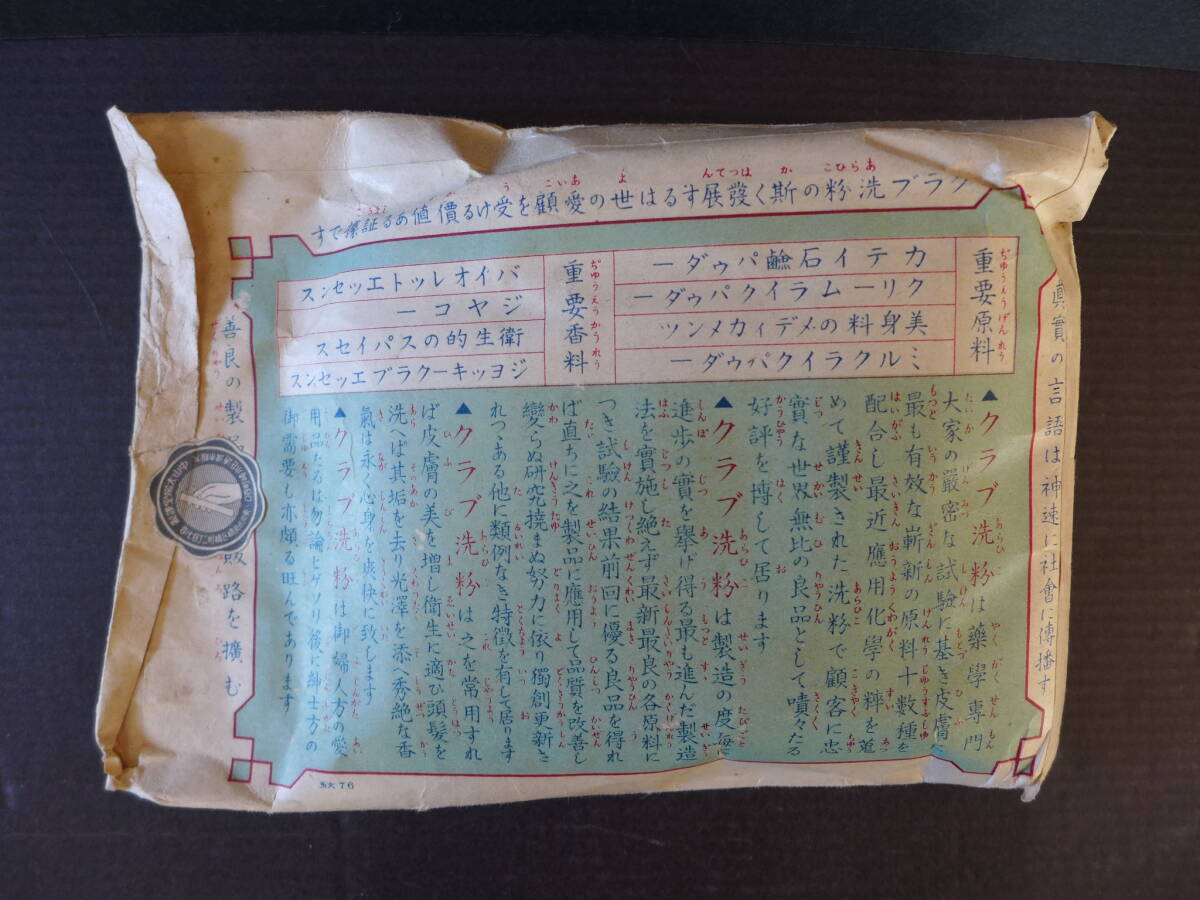 クラブ洗粉の斯く發展するは世の愛顧を受ける價値ある証據です
眞實の言語は神速に社會に傳播す
重要原料
カテイ石鹼パウダー
クリームライクパウダー
美身料のメディカメンツ
ミルクライクパウダー
重要香料
バイオレットエッセンス
ジヤコー
衛生的のスパイセス
ジヨッキークラブエッセンス
▲クラブ洗粉は藥學專門
大家の嚴密な試驗に基き皮膚
最も有效な嶄新の原料十數種を
配合し最近應用化學の粹を蒐
めて謹製された洗粉で顧客に忠
實な世界無比の良品として嘖々たる
好評を博して居ります
▲クラブ洗粉は製造の度每
進歩の實を擧げ得る最も進んだ製造
法を實施し絶えず最新最良の各原料に
つき試驗の結果前回に優る良品を得れ
ば直ちに之を製品に應用して品質を改善し
變らぬ研究撓まぬ努力に依り獨創更新さ
れつゝある他に類例なき特徵を有して居ります
▲クラブ洗粉は之を常用すれ
ば皮膚の美を增し衛生に適ひ頭髮を
洗へば其垢を去り光澤を添へ秀絶な香
氣は永く心身を爽快に致します
▲クラブ洗粉は御婦人方の愛
用品たるは勿論ヒゲソリ後に紳士方の
御需要も亦頗る旺んであります
善良の製品 販路を擴む
大76